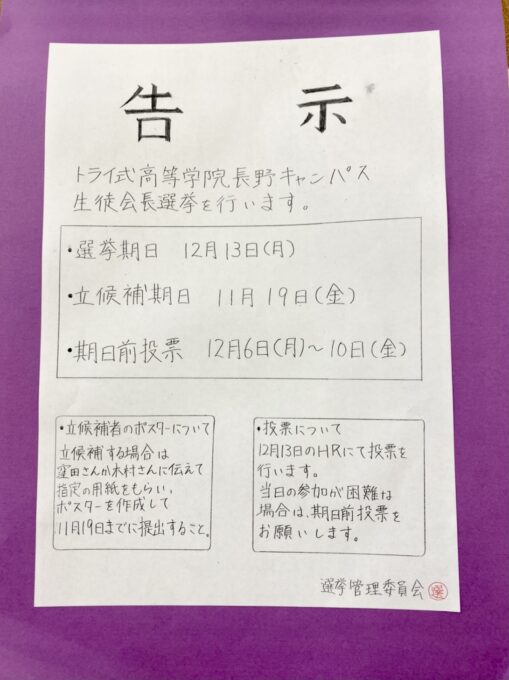 告 示
トライ式高等学院長野キャンパス
生徒会長選挙を行います。
・選挙期日 12月13日(月)
・立候補期日 11月19日(金)
・期日前投票 12月6日(月)～10日(金)
・立候補者のポスターについて
立候補する場合は
窪田さんか木村さんに伝えて
指定の用紙をもらい、
ポスターを作成して
11月19日までに提出すること。
・投票について
12月13日のHRにて投票を
行います。
当日の参加が困難な
場合は、期日前投票を
お願いします。
選挙管理委員会 選